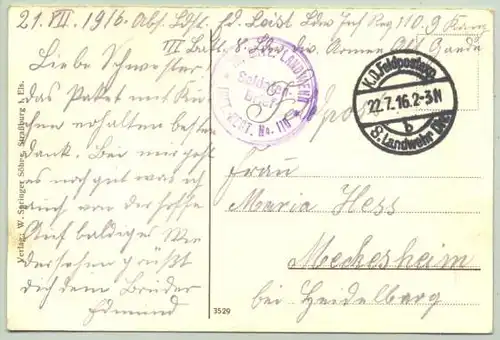 21. VII. 1916. Abs. Ldst. Ed. Leist Ldw Inf Reg 110. 9 Kom
III Batl. 8. Ldw div. Armee Abt. Gaede
Liebe Schwester!
das Paket mit Ku-
chen erhalten besten
Dank. Bei mir geht
es noch gut was ich
auch von dir hoffe
Auf baldiges Wie
dersehen grüßt
dich dein Bruder
Edmund
LANDWEHR
Soldaten-
Brief
REGT. No. 110
K.D. Feldpostexp.
22.7.16. 2-3N
b
8. Landwehr Div.
Frau
Maria Hess
Meckesheim
bei Heidelberg
Verlag: W. Springer Söhne, Straßburg i. Els.
3529